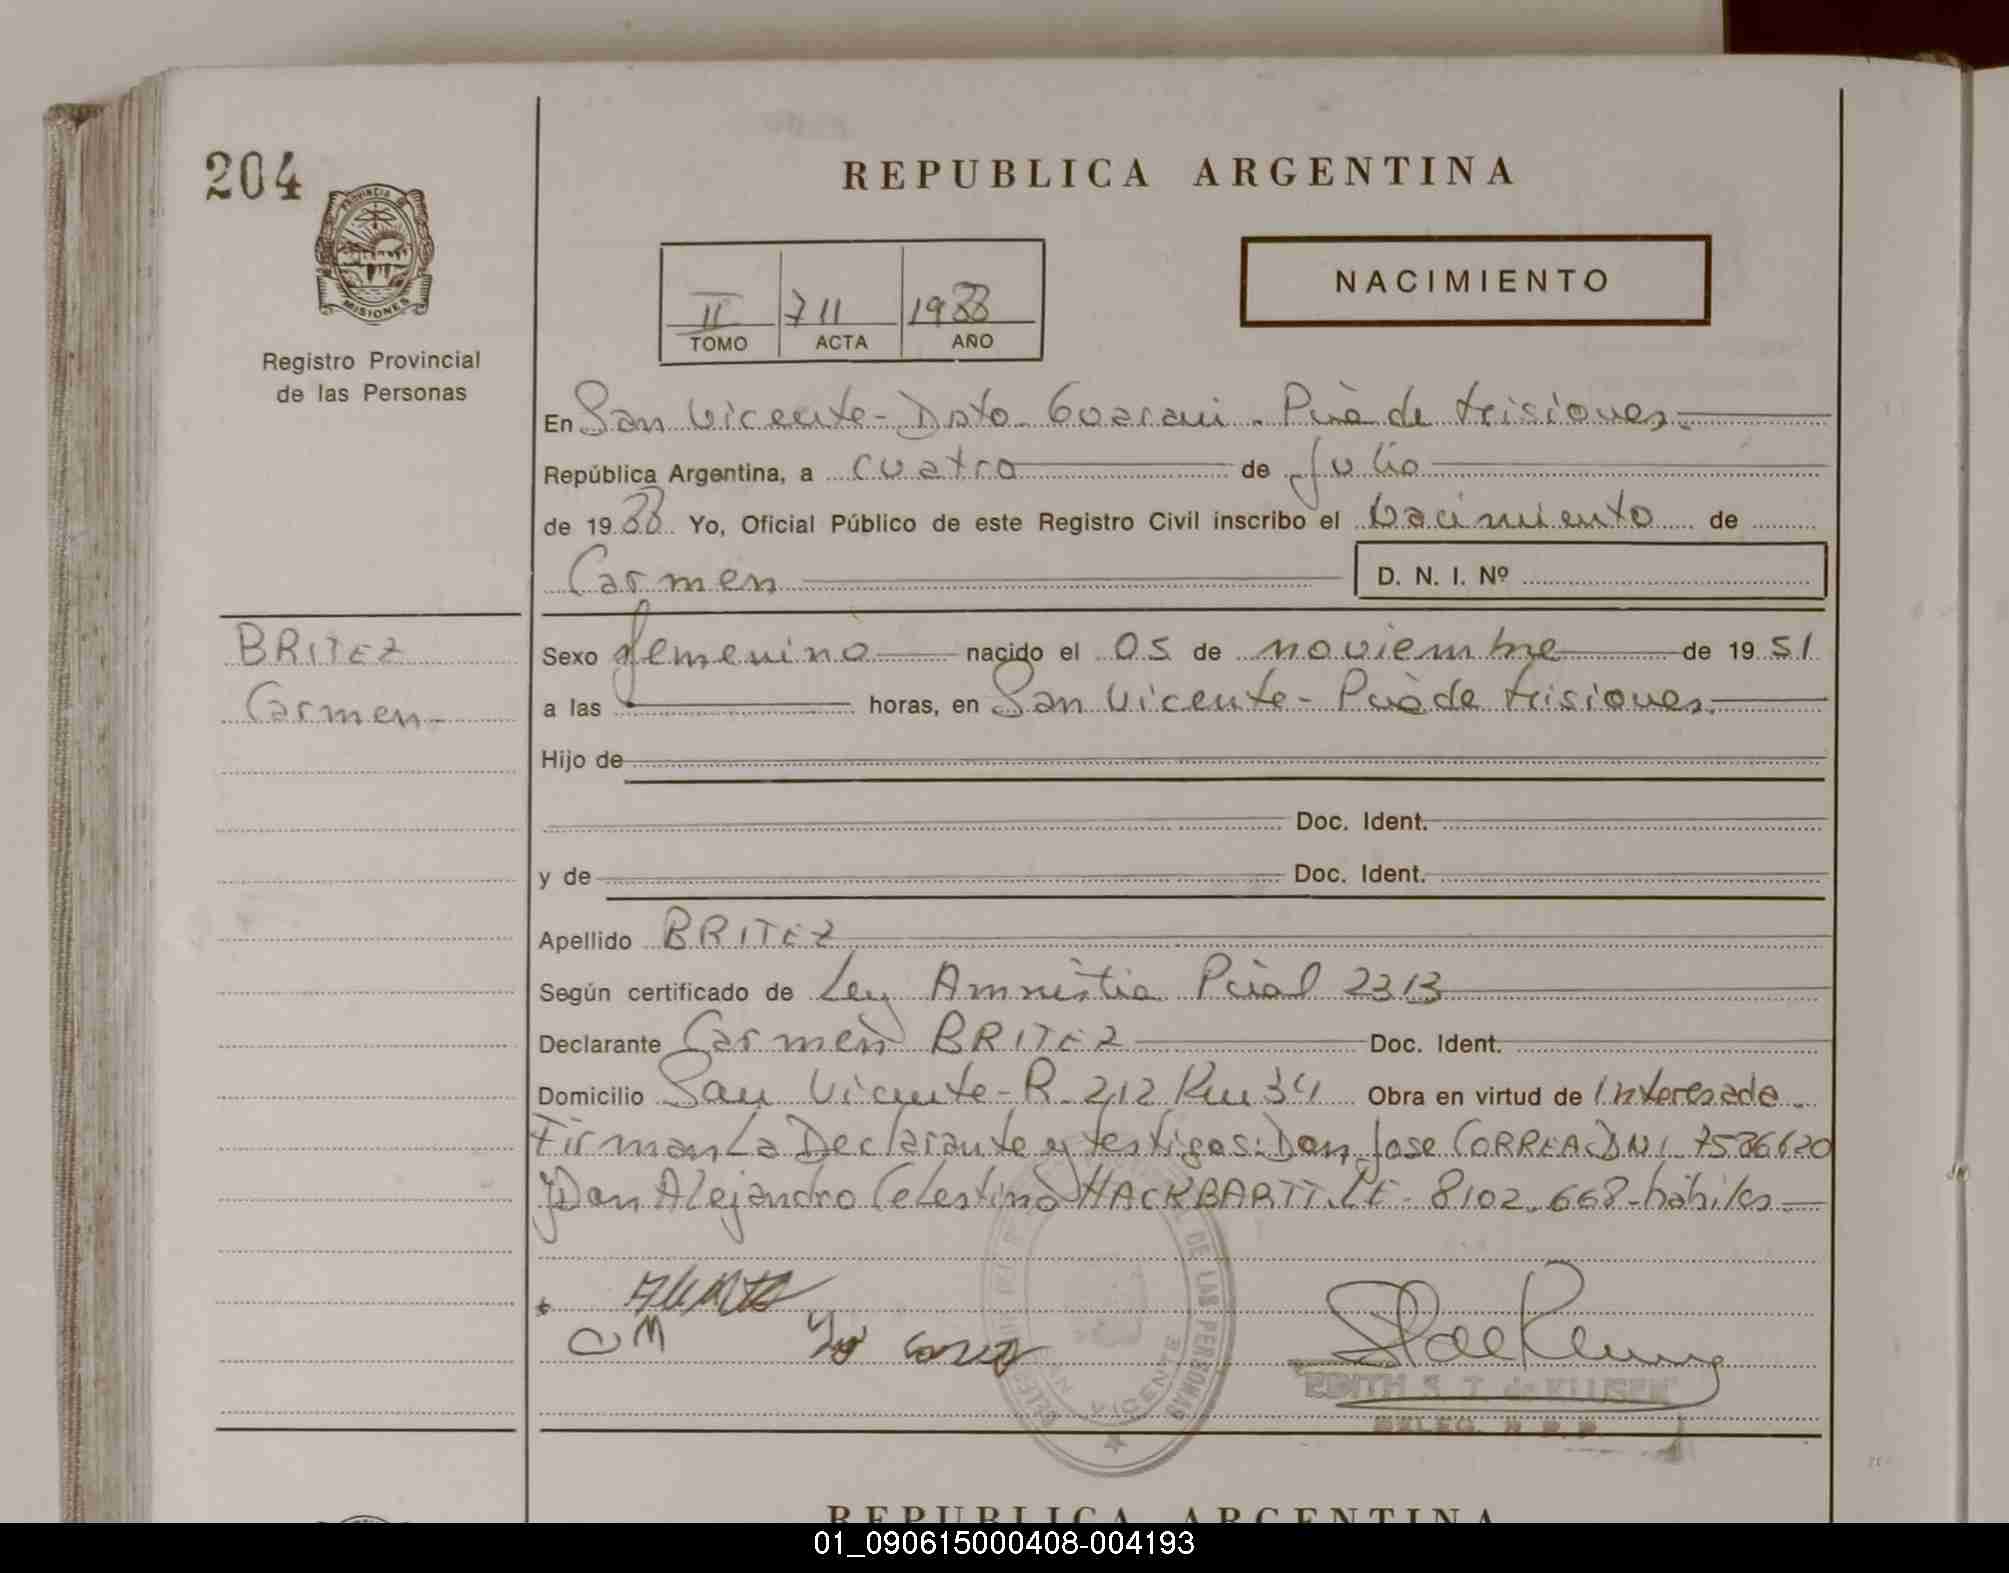 204
PROVINCIA DE
MISIONES
Registro Provincial
de las Personas
REPUBLICA ARGENTINA
NACIMIENTO
II 711 1988
TOMO ACTA AÑO
En San Vicente - Dpto. Guarani - Pcia de Misiones.
República Argentina, a cuatro de Julio
de 1988 Yo, Oficial Público de este Registro Civil inscribo el Nacimiento de
Carmen D. N. I. Nº
BRITEZ
Carmen-
Sexo femenino nacido el 05 de noviembre de 1951
a las horas, en San Vicente - Pcia de Misiones.
Hijo de
Doc. Ident.
y de Doc. Ident.
Apellido BRITEZ
Según certificado de Ley Amnistia Pcial 2313
Declarante Carmen BRITEZ Doc. Ident.
Domicilio San Vicente - R. 212 Km 34 Obra en virtud de Interesada.
Firman La Declarante y testigos: Don Jose CORREA DNI 7586620
y Don Alejandro Celestino HACKBARTT. LE - 8102.668 - hábiles
CM
DE LAS PERSONAS
SAN VICENTE
EDITH S. T. de KLUSEN
DELEG. R P P
REPUBLICA ARGENTINA
01_090615000408-004193